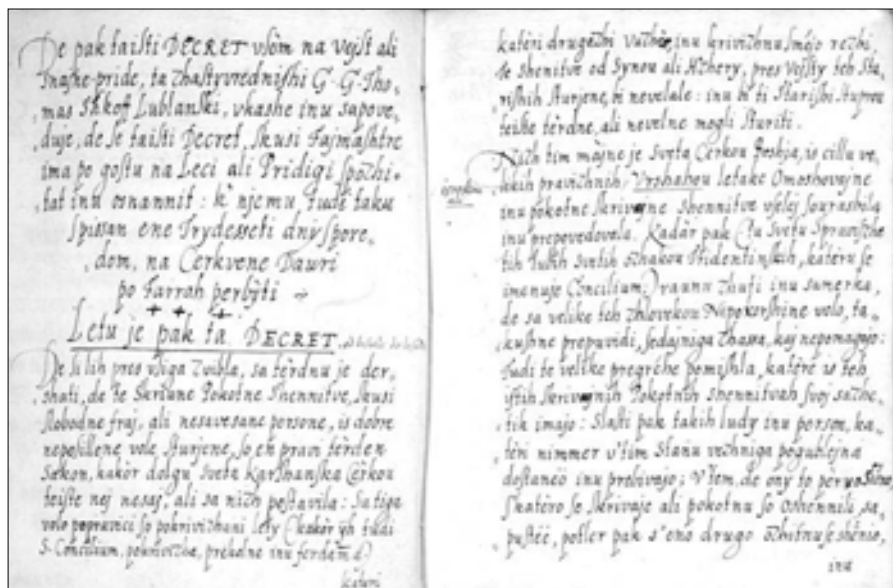 De pak taisti DECRET vsem na vejst ali
Snajne pride, ta zhastyvrednishi G. G. Tho,
mas Shkoff Lublanski, vkashe inu sapove,
duje, de se taisti Decret, skusi Fajmashtre
ima po gostu na Leci ali Pridigi spozhi,
tat inu osnannit: k' njemu, tude taku
spissan ene Trydesseti dniu spore,
dom, na Cerkvene Dauri
po Farrah perbyti
Letu je pak ta DECRET.
De si lih pres vsiga zvibla, sa terdnu je der,
shati, de te Skriune Pokotne Shennitve, skusi
slobodne fraj, ali nesavesane persone, is dobre
neposillene vole, sturjene, so en pravi terden
Sakon, kakor dolgu sveta Karshanska Cerkou
teiste nej nesaj, ali sa nizh postavila: Sa tiga
volo popravici so pokrivizhani lety (kakor yh tudi
S. Concilium, pokrivizha, prekolne inu ferdama)
kateri
kateri drugezhi vuzhe, inu krivizhnu smejo rezhi,
de Shenitve od Synou ali Hzhery, pres Vejsty teh Sta,
rishih sturjene, bi nevelale: inu bi ti Starishi stuprou
teiste terdne, ali nevelne mogli sturiti.
Nizh tim majne je sveta Cerkou Boshja, is cillu ve,
likih pravizhnih, Vrshahou letake Omoshovajne
inu pokotne skrivajne Shennitve vselej sourashila
inu prepovedovala. Kadar pak Ta Svetu Spravishe
tih Tustih Svetih Ozhakou Tridentinskih, kateru se
imenuje Concilium, Praunu zhuti inu samerka,
de sa velike teh zhlovekou Nepokorshine volo, ta,
kushne prepuvidi, sedajniga zhassa, kaj nepomagajo:
Tudi te velike pregrehe pomishla, katere is teh
istih skrivajnih Pokotnih Shennitvah svoj sazhe,
tik imajo: Slasti pak takih ludy inu person, ka,
teri nimmer v'tim Stanu vezhniga pogublejna
dostaneo inu prebivajo; V'tem, de ony to pervo Sheno,
s'katero so skrivaje ali pokotnu so oshennili, sa,
pustee, potler pak s'eno drugo ozhitnu se shenio,
inu